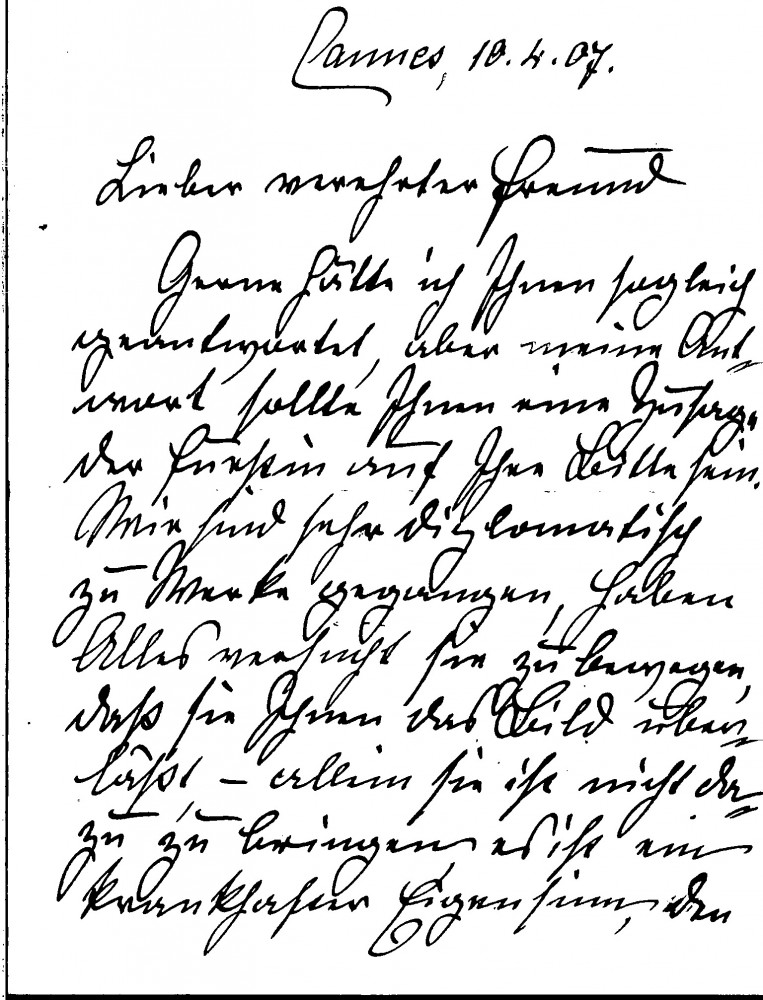 Cannes, 10.4.07.
Lieber verehrter Freund
Gerne hätte ich Ihnen sogleich
geantwortet, aber meine Ant-
wort sollte Ihnen eine Zusage
der Fürstin auf Ihre Bitte sein.
Wir sind sehr diplomatisch
zu Werke gegangen, haben
Alles versucht sie zu bewegen,
daß sie Ihnen das Bild über-
läßt, – allein sie ist nicht da-
zu zu bringen, es ist ein
krankhafter Eigensinn, den